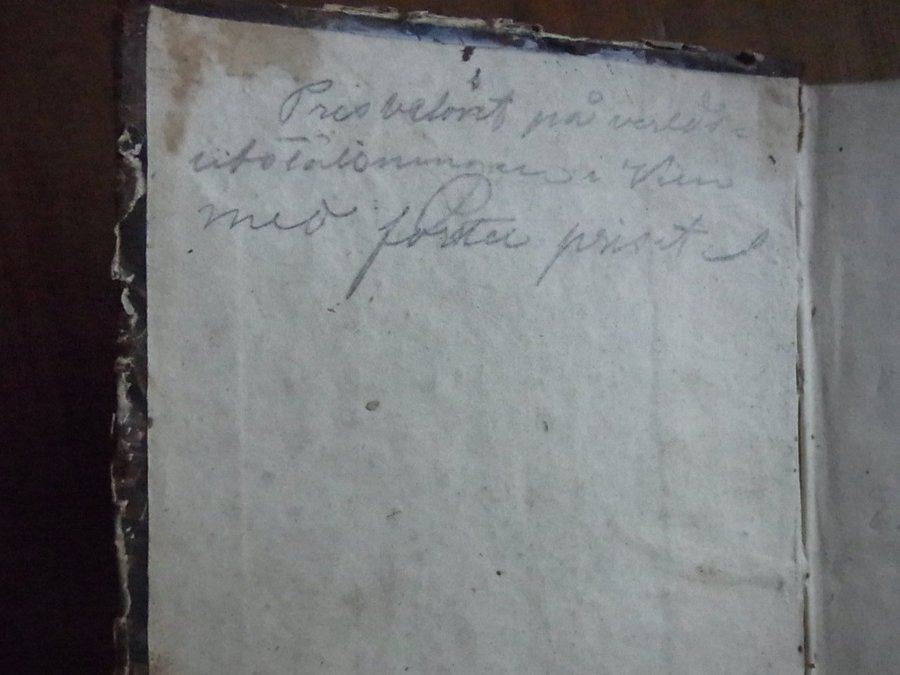 Prisbelönt på verlds-
utställningen i Wien
med första priset